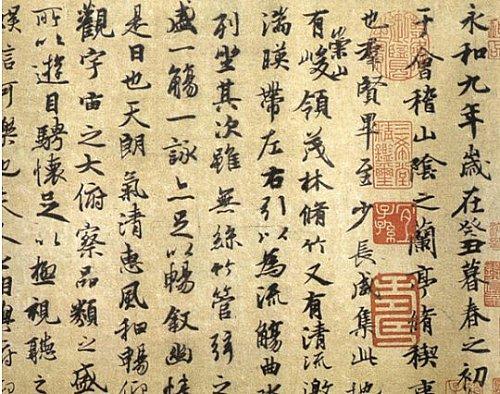 永和九年歲在癸丑暮春之初
于會稽山陰之蘭亭脩稧事
也羣賢畢至少長咸集此地
崇山
有峻領茂林脩竹又有清流激
湍暎帶左右引以為流觴曲水
列坐其次雖無絲竹管弦之
盛一觴一詠亦足以暢敘幽情
是日也天朗氣清惠風和暢仰
觀宇宙之大俯察品類之盛
所以遊目騁懷足以極視聽之
娛信可樂也夫人之相與俯仰